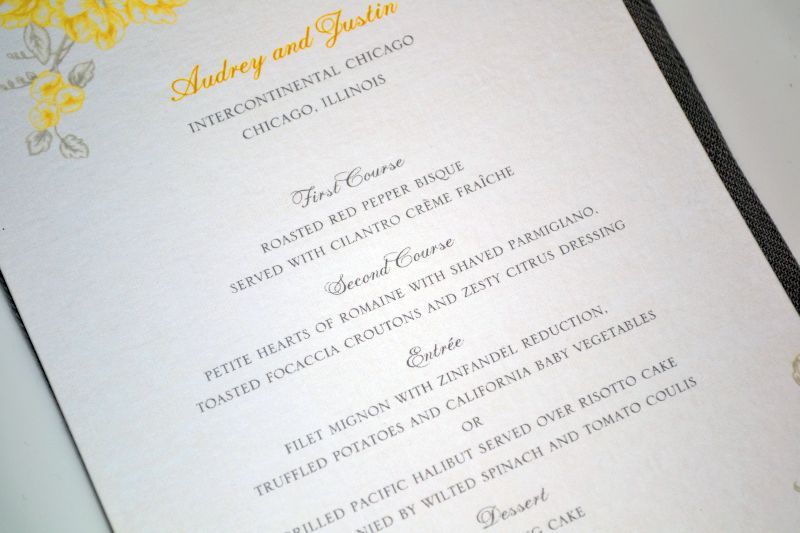 Audrey and Justin
INTERCONTINENTAL CHICAGO
CHICAGO, ILLINOIS
First Course
ROASTED RED PEPPER BISQUE
SERVED WITH CILANTRO CRÈME FRAÎCHE
Second Course
PETITE HEARTS OF ROMAINE WITH SHAVED PARMIGIANO,
TOASTED FOCACCIA CROUTONS AND ZESTY CITRUS DRESSING
Entrée
FILET MIGNON WITH ZINFANDEL REDUCTION,
TRUFFLED POTATOES AND CALIFORNIA BABY VEGETABLES
OR
RILLED PACIFIC HALIBUT SERVED OVER RISOTTO CAKE
NIED BY WILTED SPINACH AND TOMATO COULIS
Dessert
CAKE